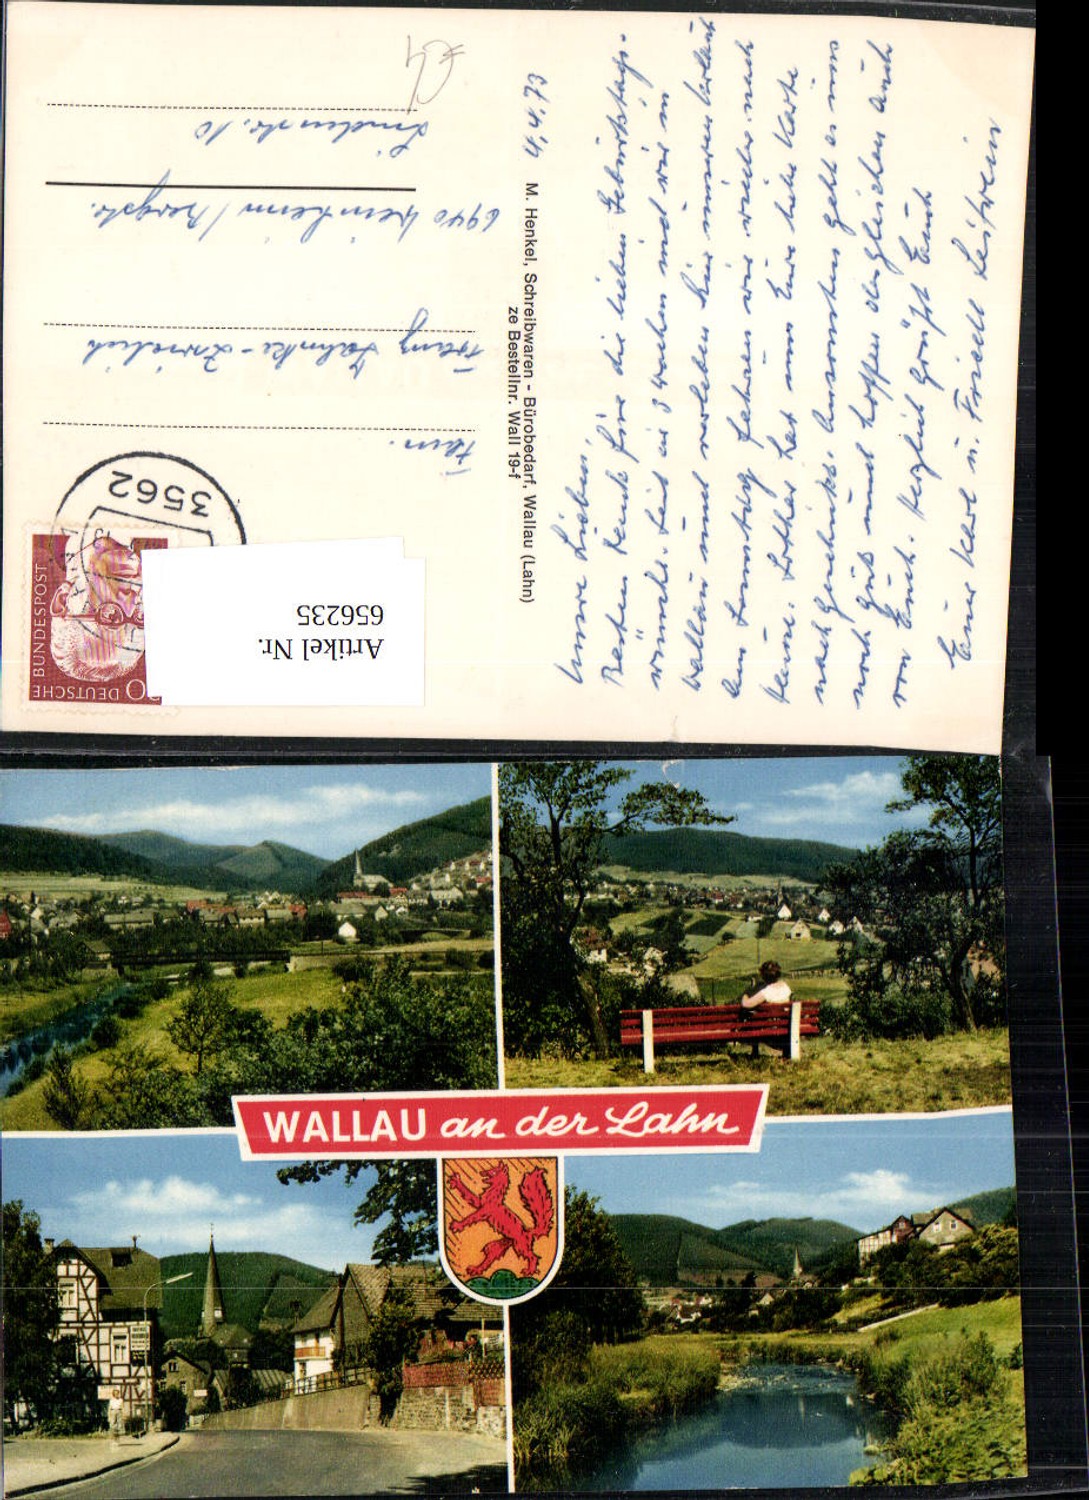 4.4.73
Unsere Lieben,
Besten Dank für die lieben Geburtstags-
wünsche. Seit 3 Wochen sind wir in
Wallau und verleben hier unseren Urlaub
am Sonntag fahren wir wieder nach
Hause. Lothar hat uns Eure liebe Karte
nach geschickt. Ansonsten geht es uns
noch gut und hoffen desgleichen auch
von Euch. Herzlich grüßt Euch
Euer Karl u. Friedl
M. Henkel, Schreibwaren - Bürobedarf, Wallau (Lahn)
ze Bestellnr. Wall 19-f
3562
DEUTSCHE
BUNDESPOST
Artikel Nr.
656235
Fam.
Franz
6940 Weinheim/Bergstr.
Lindenstr. 10
WALLAU an der Lahn